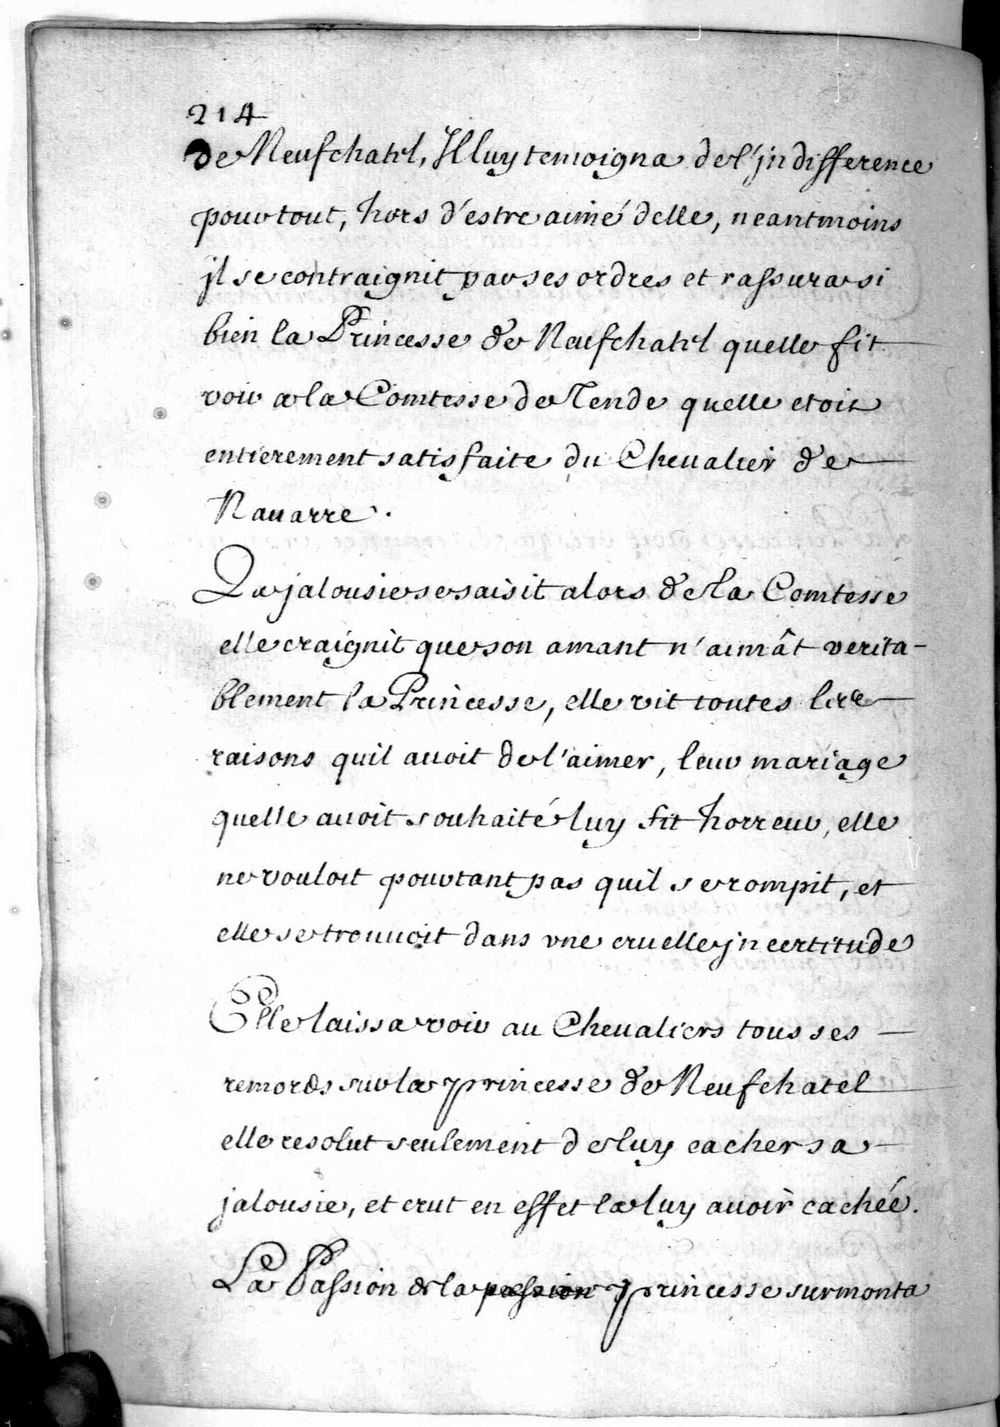 214
de Neufchatel, Il luy temoigna de l'jndifference
pour tout, hors d'estre aimé delle, neantmoins
jl se contraignit par ses ordres et rassura si
bien la Princesse de Neufchatel quelle fit
voir a la Comtesse de Tende quelle etoit
entierement satisfaite du Chevalier de
Navarre.
La jalousie se saisit alors de la Comtesse
elle craignit que son amant n'aimât verita-
blement la Princesse, elle vit toutes les
raisons quil avoit de l'aimer, leur mariage
quelle avoit souhaité luy fit horreur, elle
ne vouloit pourtant pas quil se rompit, et
elle se trouvoit dans vne cruelle jncertitude
Elle laissa voir au Chevaliers tous ses
remords sur la princesse de Neufchatel
elle resolut seulement de luy cacher sa
jalousie, et crut en effet la luy avoir cachée.
La Passion de la passion princesse surmonta